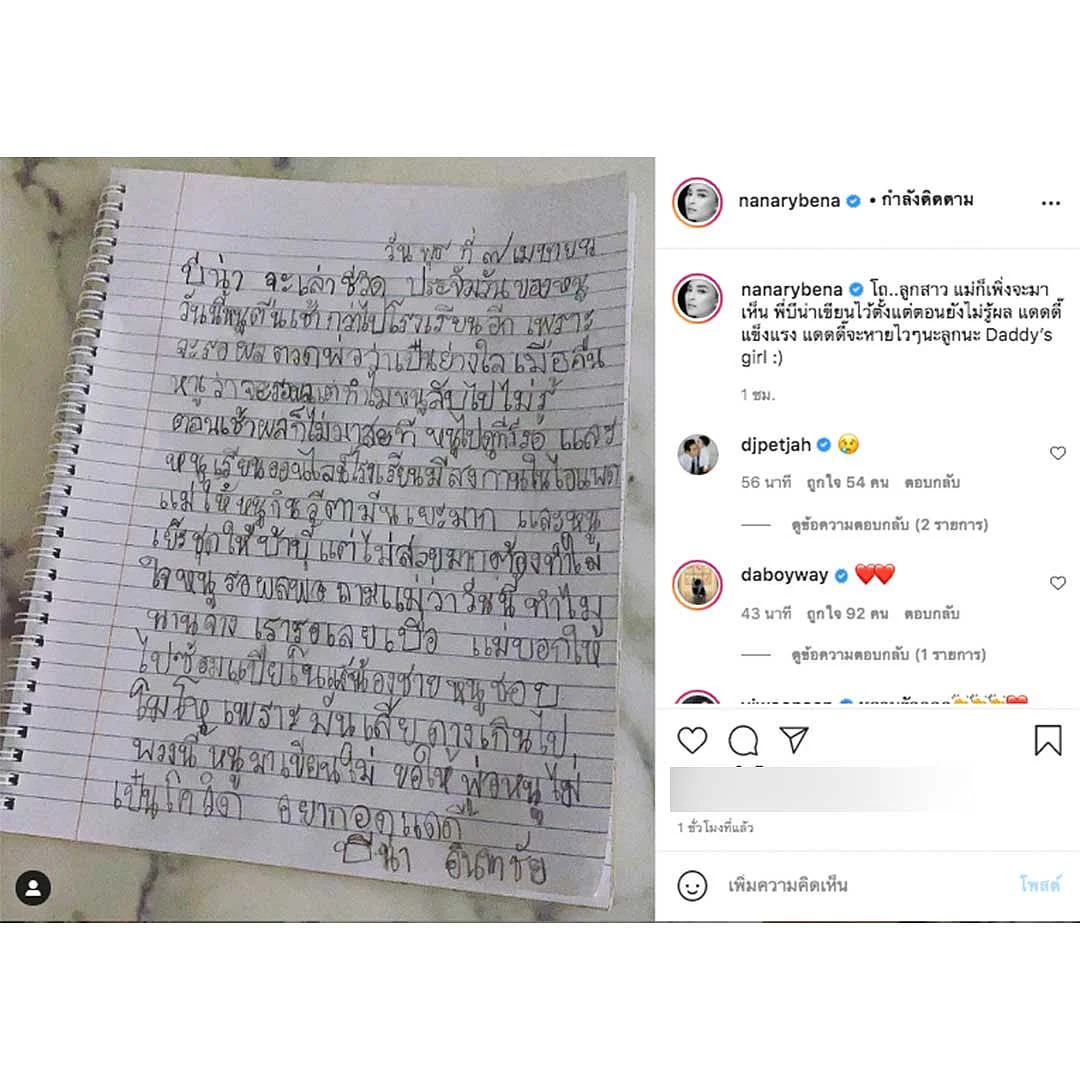 วัน พุธ ที่ ๗ เมษายน
บีน่า จะเล่าชีวิต ประจำวันของหนู
วันนี้หนูตื่นเช้ากว่าไปโรงเรียนอีก เพราะ
จะรอผล ตรวดพ่อว่าเป็นย่างใล เมื่อคืน
หนูว่าจะรอผลแต่ทำไมหนูลับไปไม่รู้
ตอนเช้าผลก็ไม่มาสะที หนูไปดูทีวีรอ และ
หนูเรียนออนไลน์โรงเรียนมีส่งงานในไอแพด
แม่ให้หนูกินวีตามีนเยะมาก และหนู
เย็บชุดให้บาบี้แต่ไม่สวยมากต้องทำไม่
ใจหนูรอผลพ่อ ถามแม่ว่าวันนี้ ทำไม
นานจาง เรารอเลยเบื่อ แม่บอกให้
ไปซ้อมแปียโนแต่น้องชายหนูชอบ
โมโหหู เพราะมันเสียดางเกินไป
พวงนี้หนูมาเขียนใม่ ขอให้พ่อหนูไม่
เป็นโควิด อยากอดแดดดี้
บีน่า อินทชัย
nanarybena • กำลังติดตาม
nanarybena โถ..ลูกสาว แม่ก็เพิ่งจะมา
เห็น พี่บีน่าเขียนไว้ตั้งแต่ตอนยังไม่รู้ผล แดดดี้
แข็งแรง แดดดี้จะหายไวๆนะลูกนะ Daddy's
girl :)
1 ชม.
djpetjah 😢
56 นาที ถูกใจ 54 คน ตอบกลับ
ดูข้อความตอบกลับ (2 รายการ)
daboyway ❤️❤️
43 นาที ถูกใจ 92 คน ตอบกลับ
ดูข้อความตอบกลับ (1 รายการ)
1 ชั่วโมงที่แล้ว
เพิ่มความคิดเห็น โพสต์